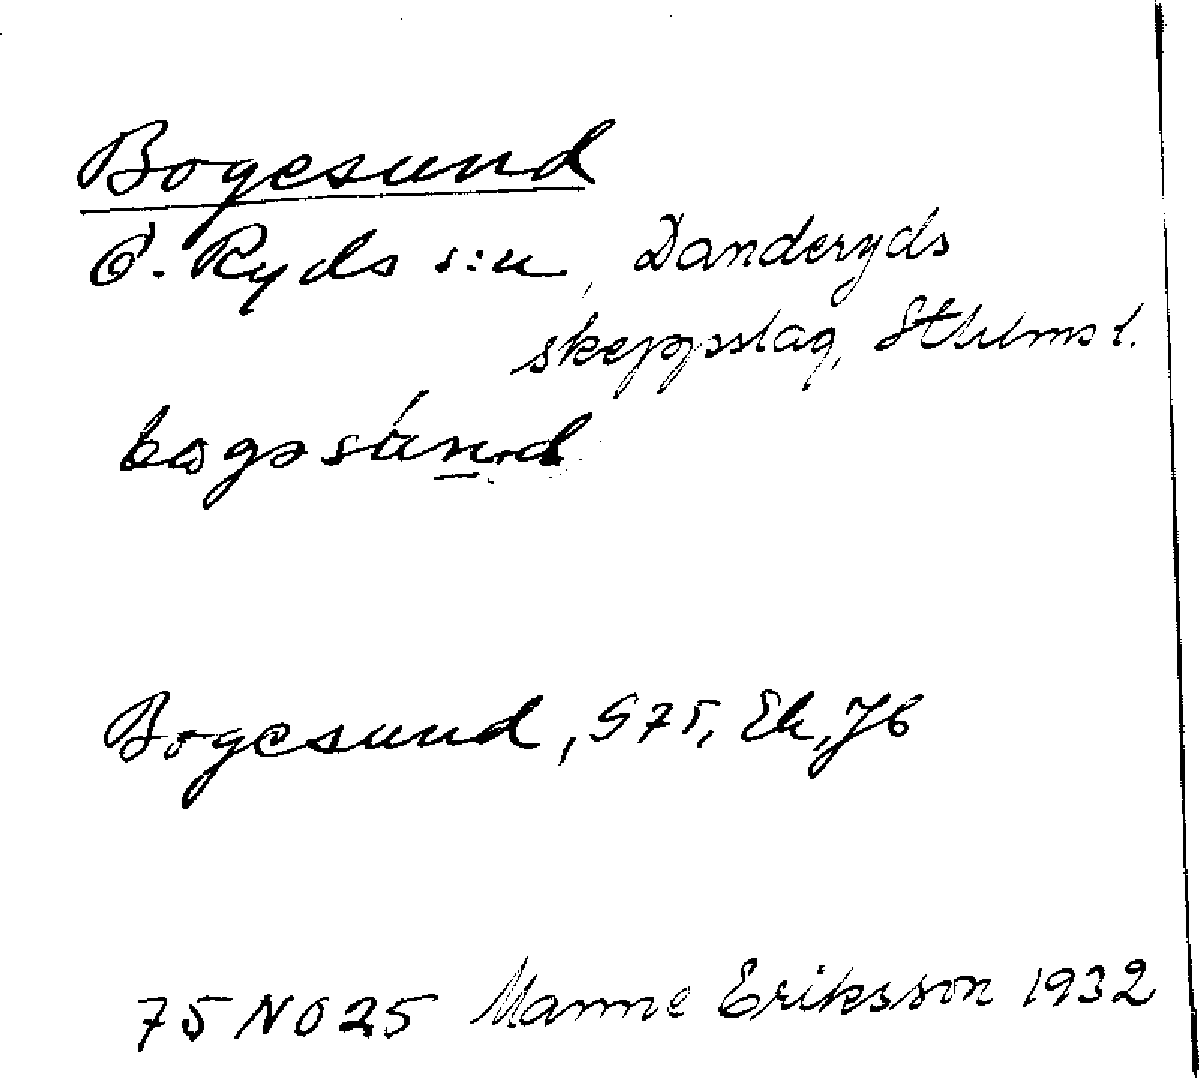 Bogesund
Ö. Ryds s:n, Danderyds
skeppslag, Sthlms l.
Bogesund, G 75, Ek, Jb
75 NO 25 Manne Eriksson 1932